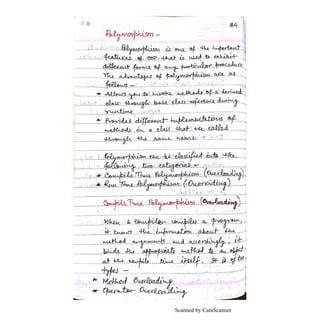 #4
Polymorphism -
Polymorphism is one of the important
features of OOP that is used to exhibit
different forms of any particular procedure
The advantages of polymorphism are as
follows -
* Allows you to invoke methods of a derived
class through base class reference during
runtime
* Provides different implementations of
methods in a class that are called
through the same name
Polymorphism can be classified into the
following two categories -
* Compile Time Polymorphism (Overloading)
* Run Time Polymorphism (Overriding)
Compile Time Polymorphism (Overloading)
When a compiler compiles a program,
it knows the information about the
method arguments and accordingly, it
binds the appropriate method to an object
at the compile time itself. It is of two
types -
* Method Overloading
* Operator Overloading
Scanned by CamScanner